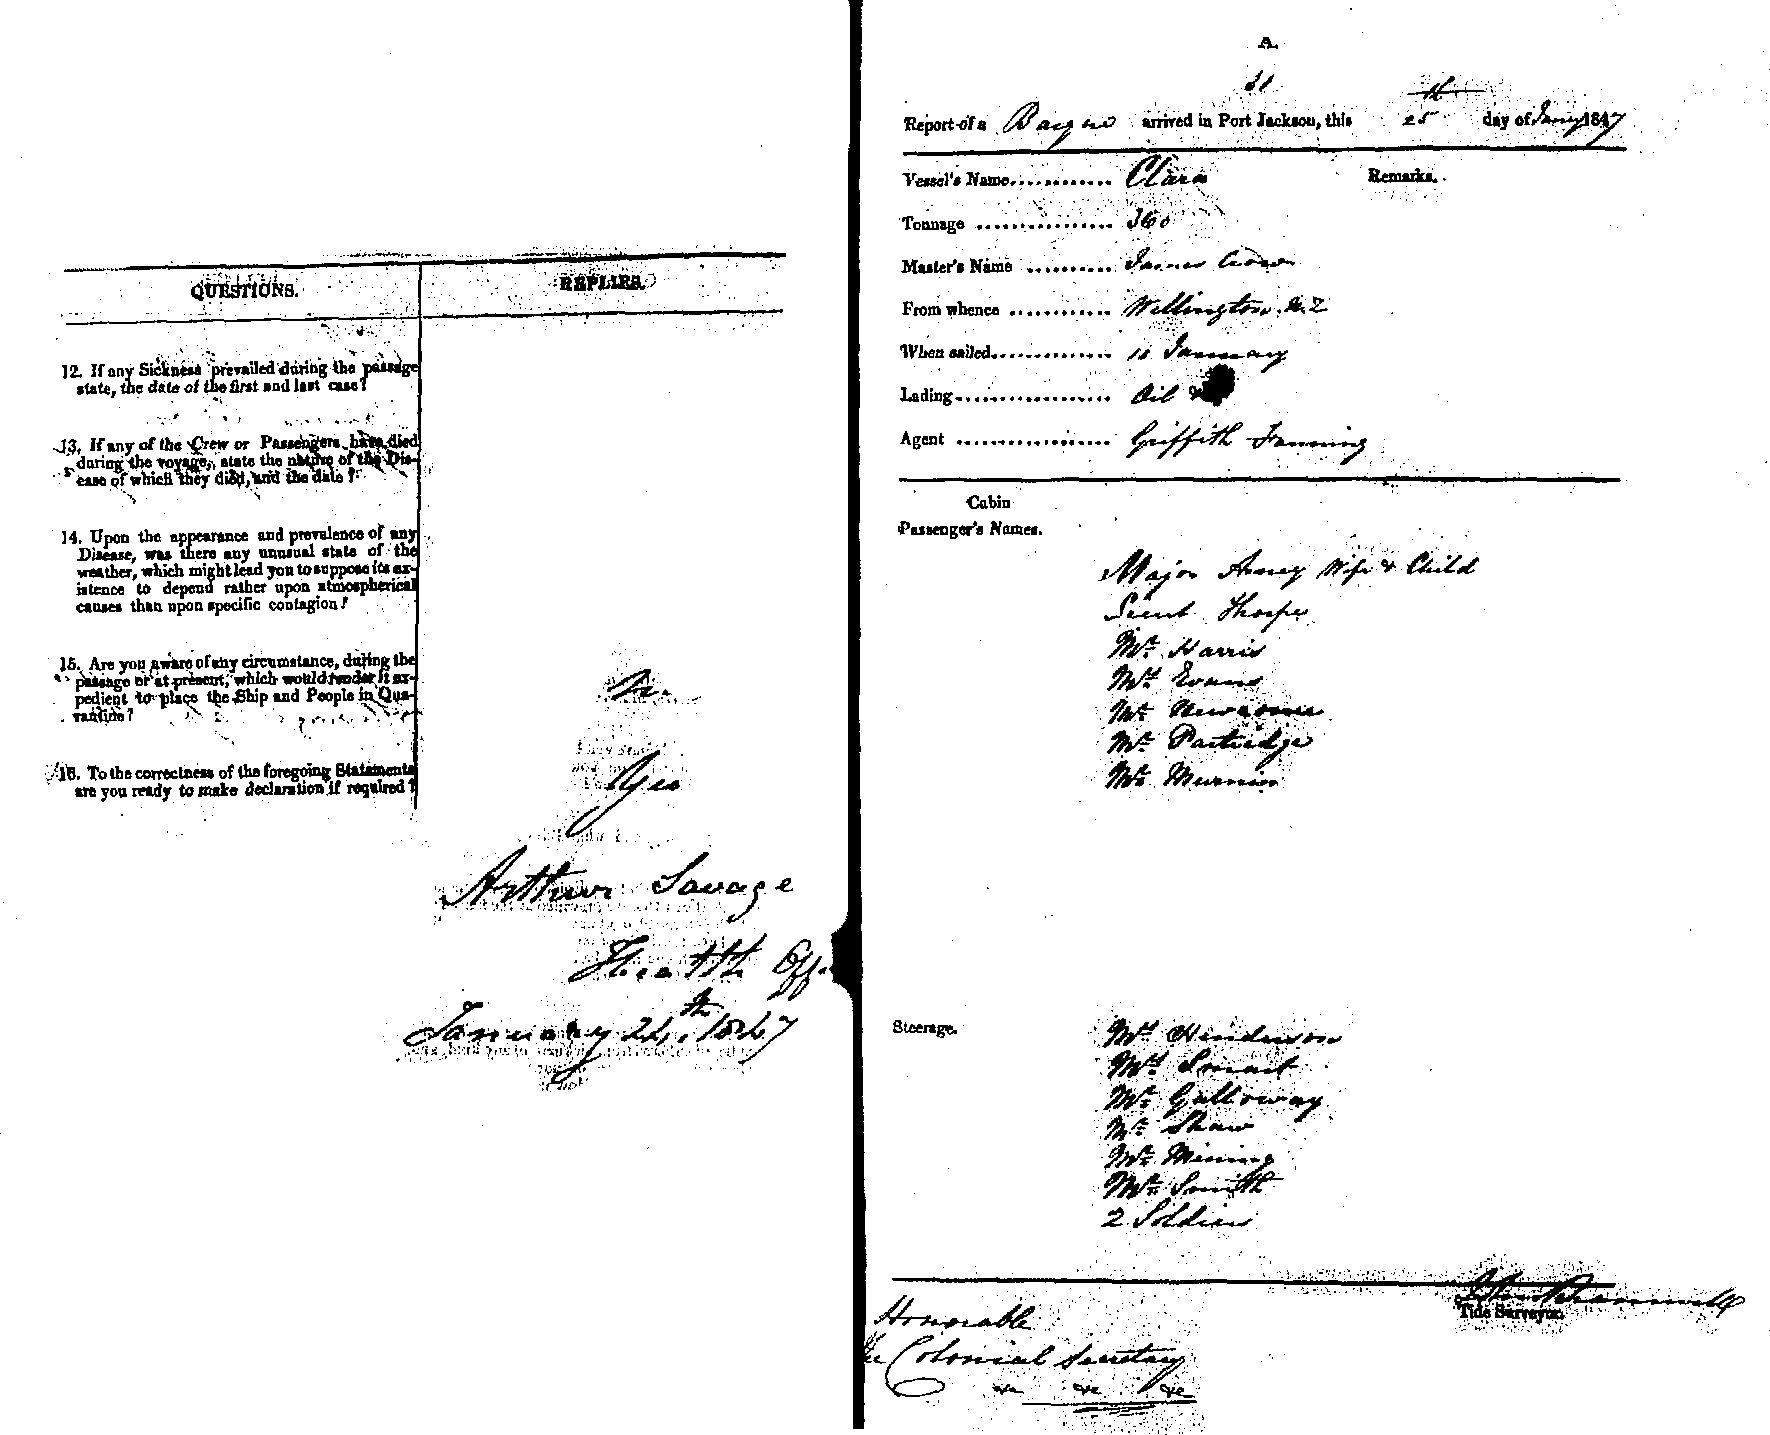 QUESTIONS.
REPLIES.
12. If any Sickness prevailed during the passage
state, the date of the first and last case?
13. If any of the Crew or Passengers have died
during the voyage, state the nature of the Dis-
ease of which they died, and the date?
14. Upon the appearance and prevalence of any
Disease, was there any unusual state of the
weather, which might lead you to suppose its ex-
istence to depend rather upon atmospherical
causes than upon specific contagion?
15. Are you aware of any circumstance, during the
passage or at present, which would render it ex-
pedient to place the Ship and People in Qua-
rantine?
No.
16. To the correctness of the foregoing Statements
are you ready to make declaration if required?
Yes
Arthur Savage
Health Offr
January 24th. 1847
A.
31
Report of a Barque arrived in Port Jackson, this 25th day of Jany 1847
Vessel's Name Clara Remarks.
Tonnage 360
Master's Name James Crow
From whence Wellington N.Z
When sailed 11 January
Lading Oil &
Agent Griffith Fanning
Cabin
Passenger's Names.
Major Arney Wife & Child
Lieut Thorpe
Mr. Harris
Mr. Evans
Mr. Newsome
Mr. Partridge
Mr. Murnin
Steerage.
Mrs Henderson
Mrs Smart
Mr. Galloway
Mr. Shaw
Mr. Mining
Mr. Smith
2 Soldiers
Tide Surveyor.
Honorable
The Colonial Secretary
&c &c &c